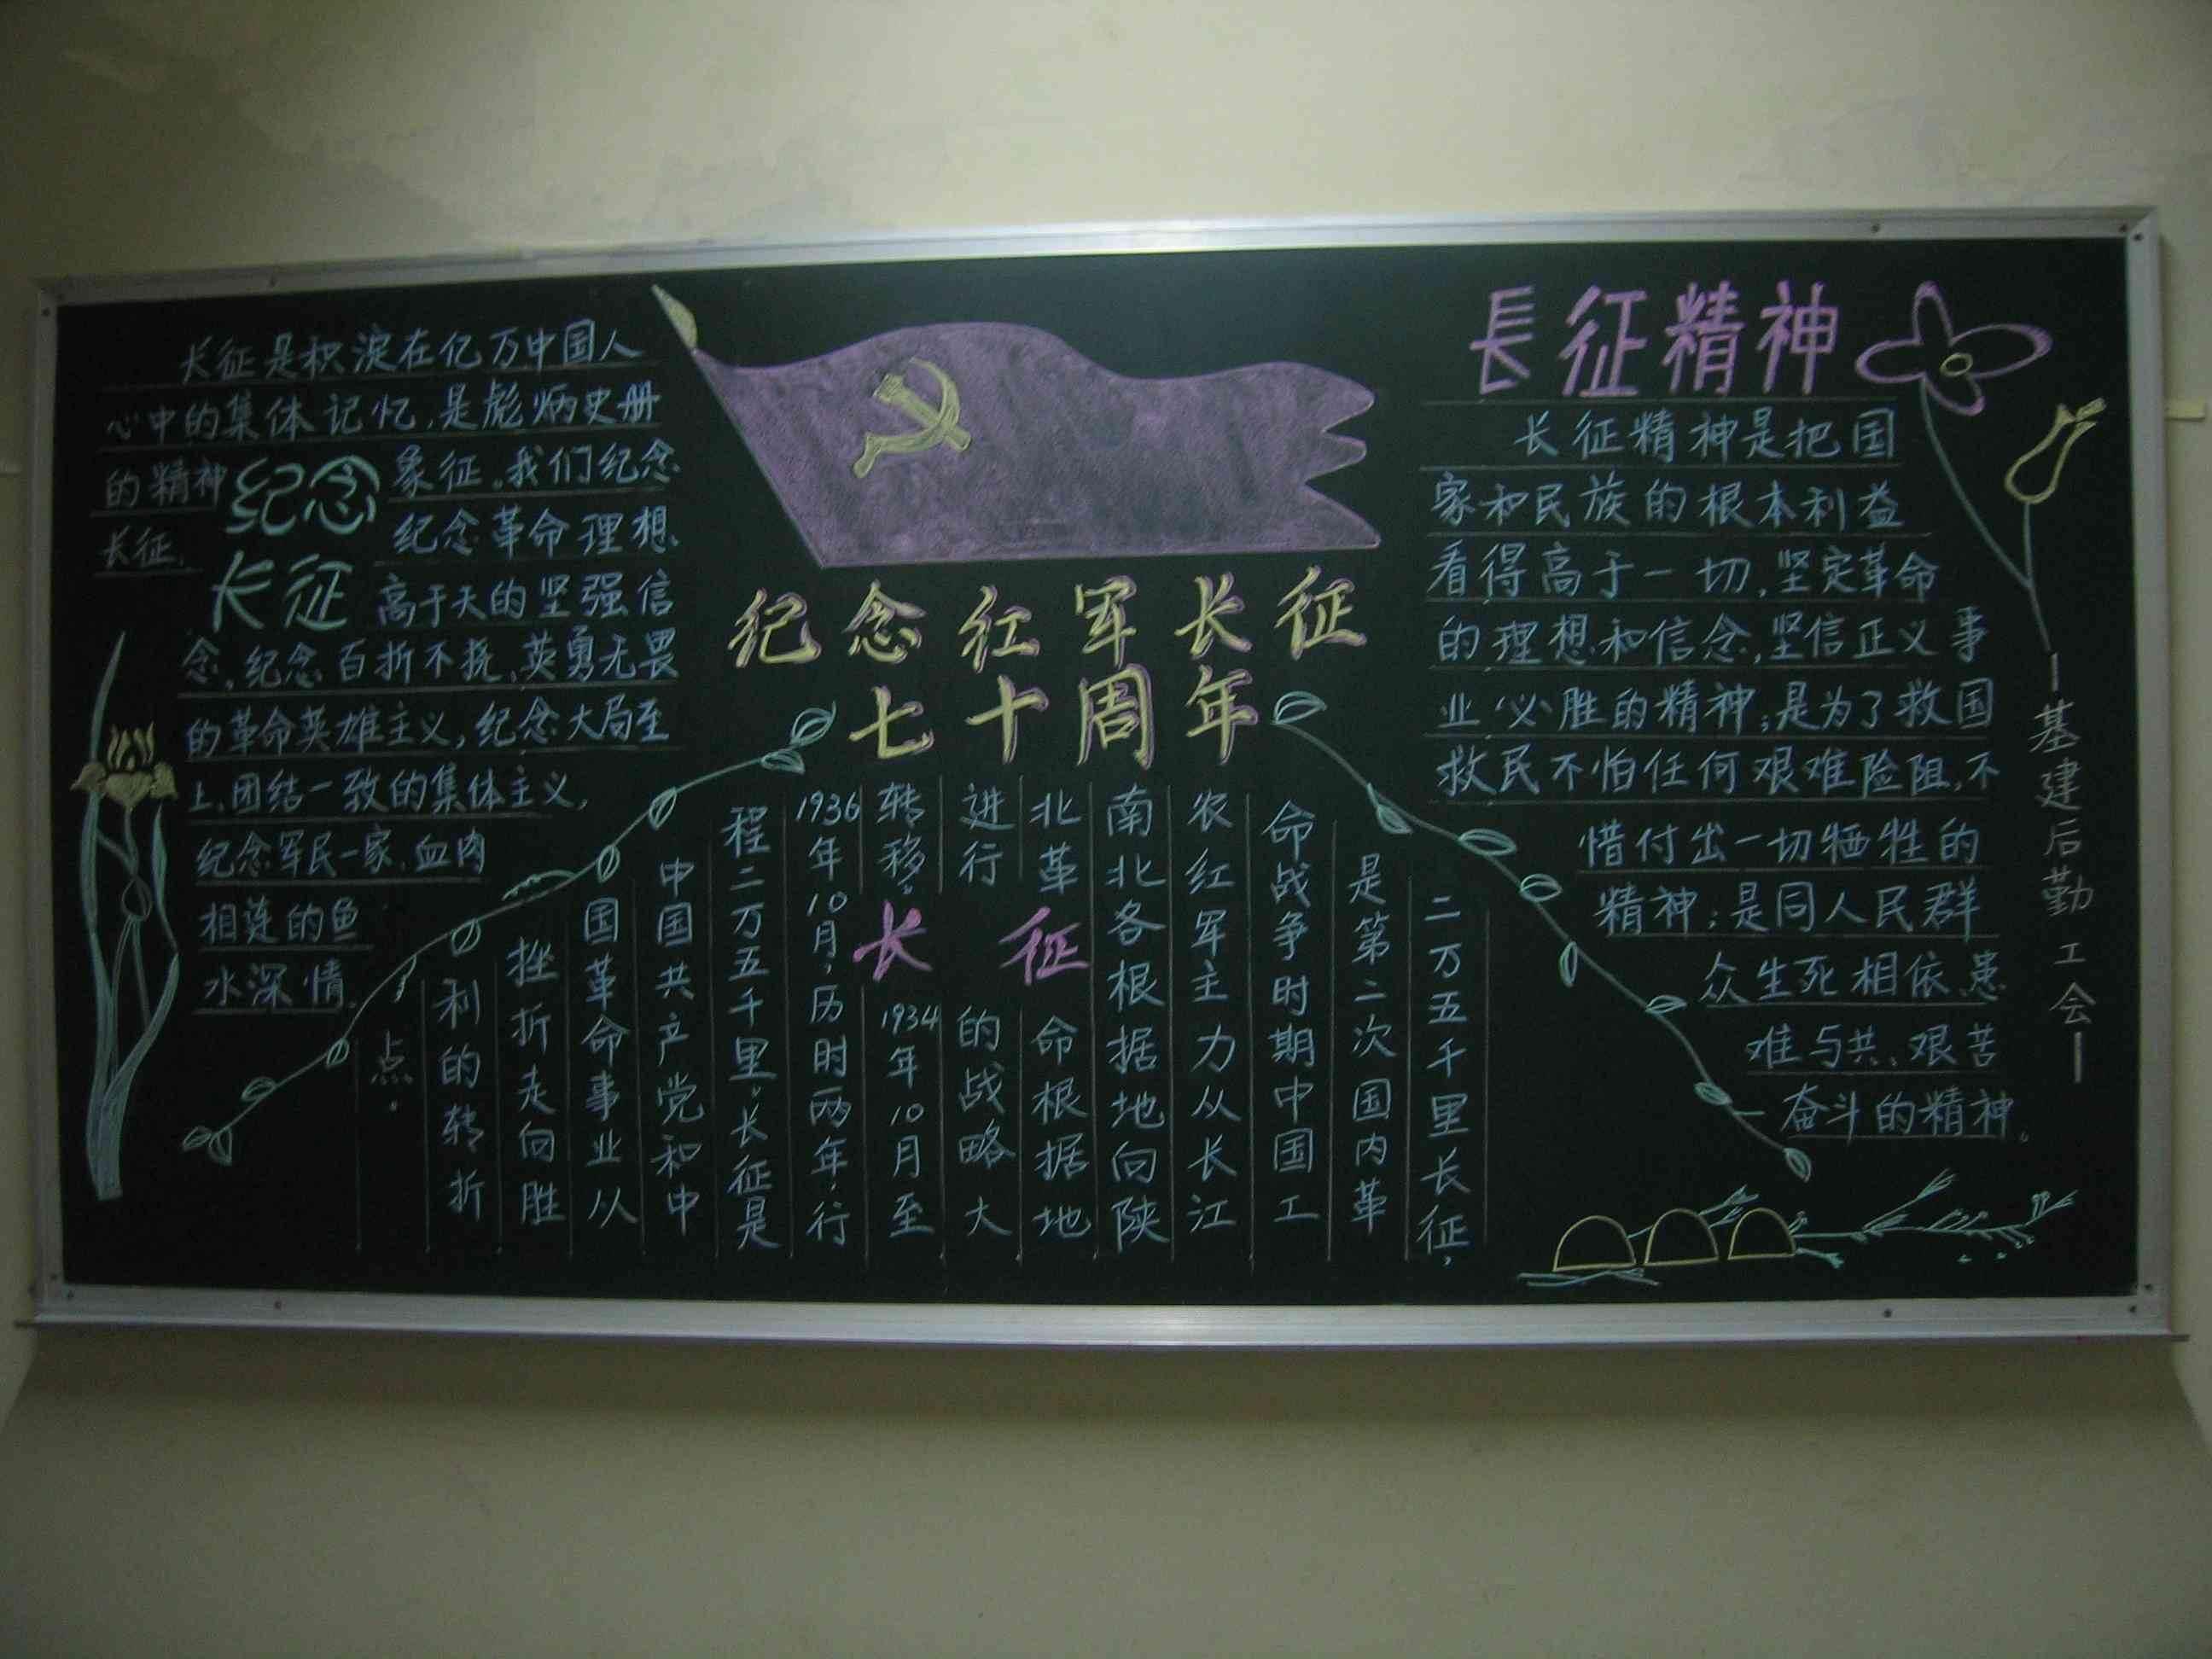 长征是积淀在亿万中国人
心中的集体记忆,是彪炳史册
的精神
象征。我们纪念
长征,
纪念革命理想
高于天的坚强信
念,纪念百折不挠,英勇无畏
的革命英雄主义,纪念大局至
上,团结一致的集体主义,
纪念军民一家、血肉
相莲的鱼
水深情。
纪念
长征
纪念红军长征
七十周年
长征
二万五千里长征,
是第二次国内革
命战争时期中国工
农红军主力从长江
南北各根据地向陕
北革命根据地
进行的战略大
转移。1934年10月至
1936年10月,历时两年,行
程二万五千里。长征是
中国共产党和中
国革命事业从
挫折走向胜
利的转折
点。
長征精神
长征精神是把国
家和民族的根本利益
看得高于一切,坚定革命
的理想和信念,坚信正义事
业必胜的精神;是为了救国
救民不怕任何艰难险阻,不
惜付出一切牺牲的
精神;是同人民群
众生死相依、患
难与共、艰苦
奋斗的精神。
—基建后勤工会—